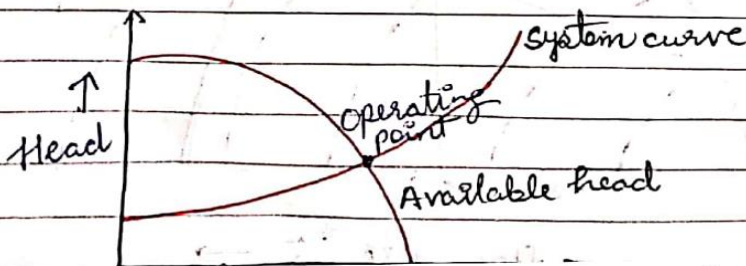 system curve
Operating
point
↑
Head
Available head